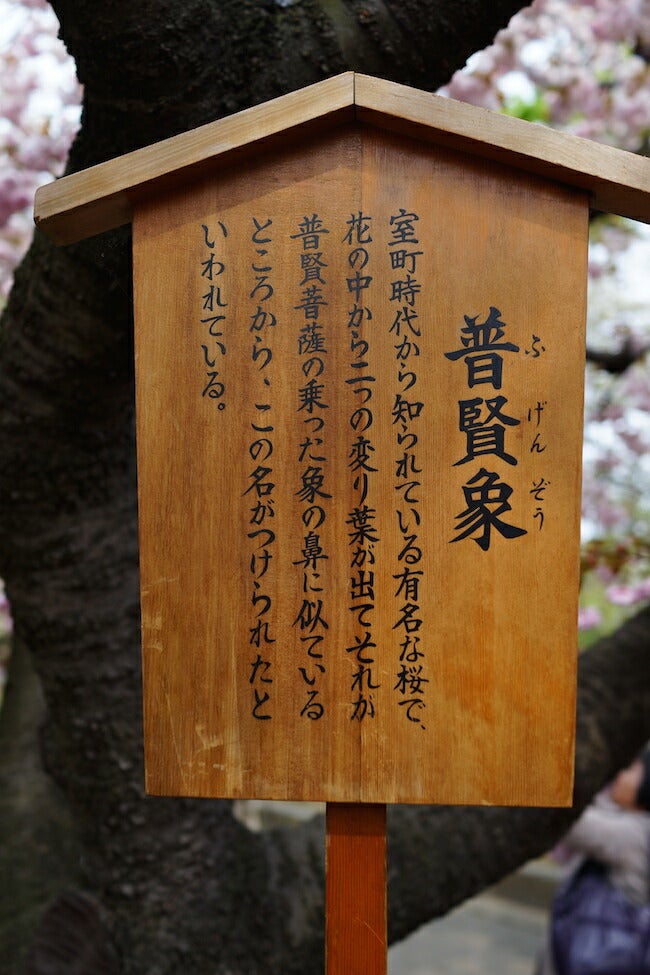 普賢象
ふげんぞう
室町時代から知られている有名な桜で、
花の中から二つの変り葉が出てそれが
普賢菩薩の乗った象の鼻に似ている
ところから、この名がつけられたと
いわれている。